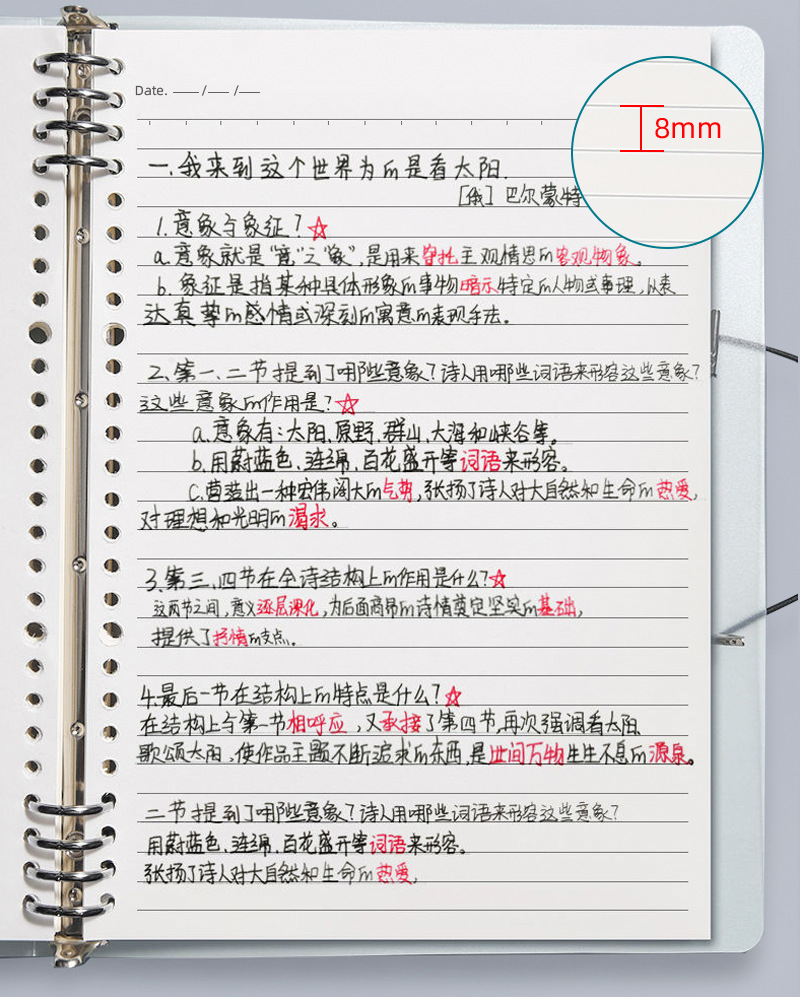 Date. ___ /___ /___
8mm
一.我来到这个世界为的是看太阳.
[俄] 巴尔蒙特
1.意象与象征？☆
a.意象就是“意”之“象”,是用来寄托主观情思的客观物象。
b.象征是指某种具体形象的事物暗示特定的人物或事理,以表
达真挚的感情或深刻的寓意的表现手法。
2.第一、二节提到了哪些意象？诗人用哪些词语来形容这些意象？
这些意象的作用是？☆
a.意象有:太阳,原野,群山,大海和峡谷等。
b.用蔚蓝色、连绵,百花盛开等词语来形容。
c.营造出一种宏伟阔大的气势,张扬了诗人对大自然和生命的热爱,
对理想和光明的渴求。
3.第三、四节在全诗结构上的作用是什么?☆
这两节之间,意义逐层深化,为后面高昂的诗情奠定坚实的基础,
提供了抒情的支点。
4.最后一节在结构上的特点是什么?☆
在结构上与第一节相呼应,又承接了第四节,再次强调看太阳
歌颂太阳,使作品主题不断追求的东西,是世间万物生生不息的源泉。
二节提到了哪些意象？诗人用哪些词语来形容这些意象？
用蔚蓝色、连绵,百花盛开等词语来形容。
张扬了诗人对大自然和生命的热爱,